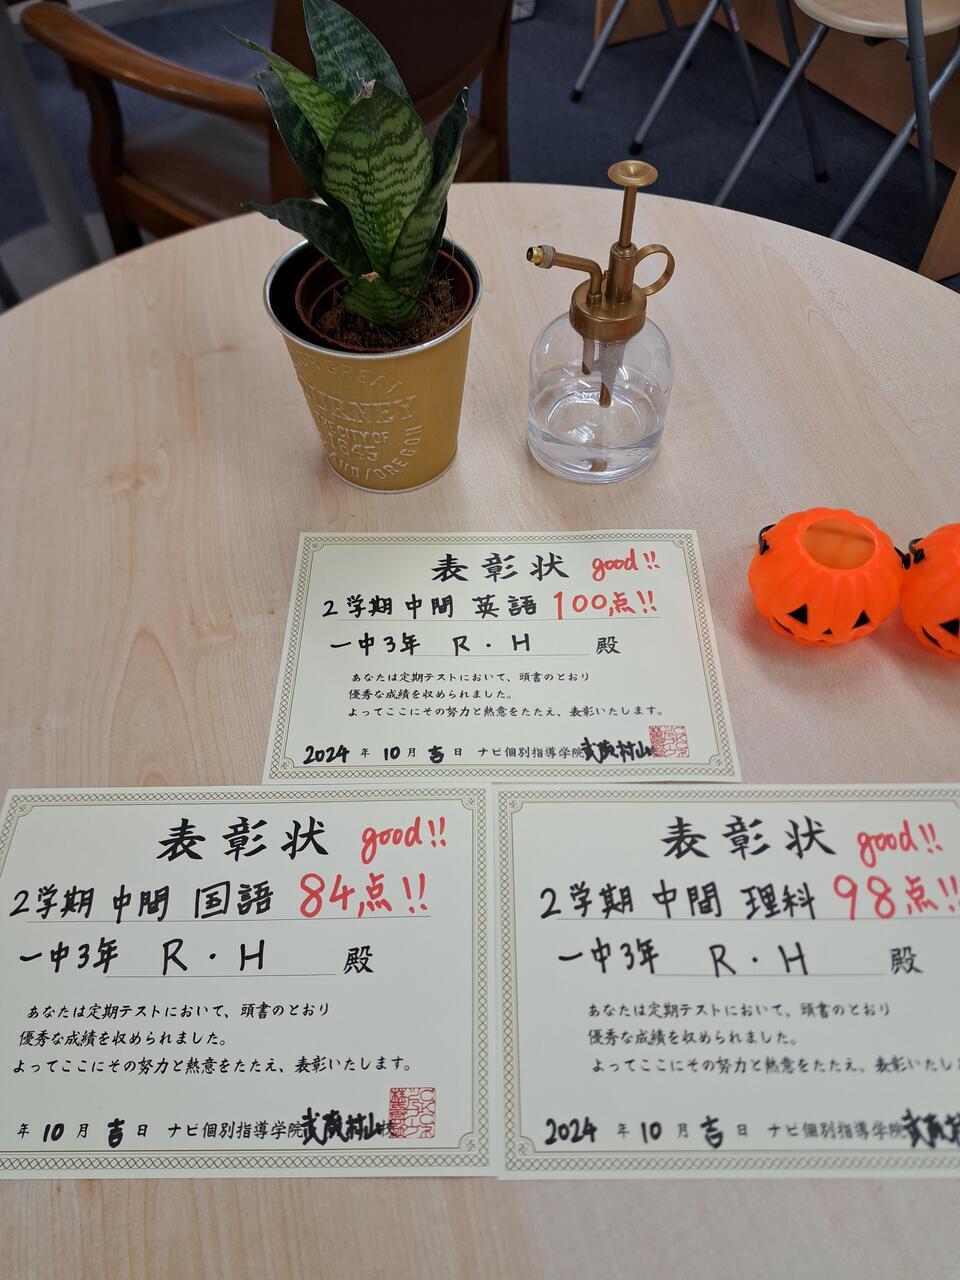 JOURNEY
THE CITY OF
1845
表彰状 good!!
2学期 中間 英語 100点!!
一中3年 R・H 殿
あなたは定期テストにおいて、頭書のとおり
優秀な成績を収められました。
よってここにその努力と熱意をたたえ、表彰いたします。
2024年 10月 吉日 ナビ個別指導学院武蔵村山校
表彰状 good!!
2学期 中間 国語 84点!!
一中3年 R・H 殿
あなたは定期テストにおいて、頭書のとおり
優秀な成績を収められました。
よってここにその努力と熱意をたたえ、表彰いたします。
年 10月 吉日 ナビ個別指導学院武蔵村山校
表彰状 good!!
2学期 中間 理科 98点!!
一中3年 R・H 殿
あなたは定期テストにおいて、頭書のとおり
優秀な成績を収められました。
よってここにその努力と熱意をたたえ、表彰いたし
2024年 10月 吉日 ナビ個別指導学院武蔵村